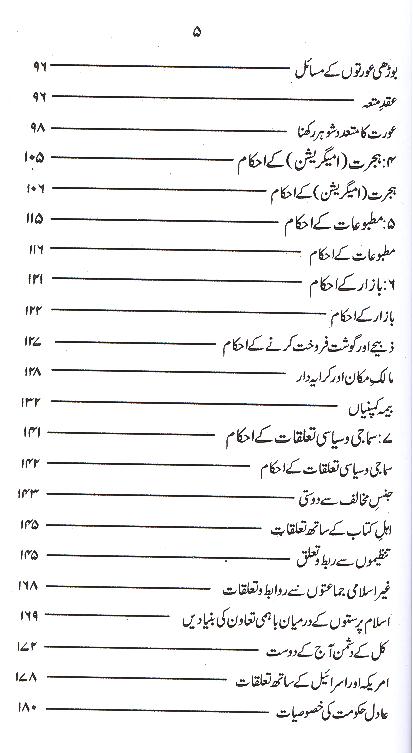 ۵
بوڑھی عورتوں کے مسائل ۹۶
عقدِ متعہ ۹۶
عورت کا متعدد شوہر رکھنا ۹۸
۴: ہجرت (امیگریشن) کے احکام ۱۰۵
ہجرت (امیگریشن) کے احکام ۱۰۶
۵: مطبوعات کے احکام ۱۱۵
مطبوعات کے احکام ۱۱۶
۶: بازار کے احکام ۱۲۱
بازار کے احکام ۱۲۲
ذبیحے اور گوشت فروخت کرنے کے احکام ۱۲۷
مالک مکان اور کرایہ دار ۱۲۸
بیمہ کمپنیاں ۱۳۲
۷: سماجی و سیاسی تعلقات کے احکام ۱۴۱
سماجی و سیاسی تعلقات کے احکام ۱۴۲
جنسِ مخالف سے دوستی ۱۴۳
اہل کتاب کے ساتھ تعلقات ۱۴۵
تنظیموں سے ربط و تعلق ۱۴۵
غیر اسلامی جماعتوں سے روابط و تعلقات ۱۶۸
اسلام پرستوں کے درمیان باہمی تعاون کی بنیادیں ۱۶۹
کل کے دشمن آج کے دوست ۱۷۲
امریکہ اور اسرائیل کے ساتھ تعلقات ۱۷۸
عادل حکومت کی خصوصیات ۱۸۰